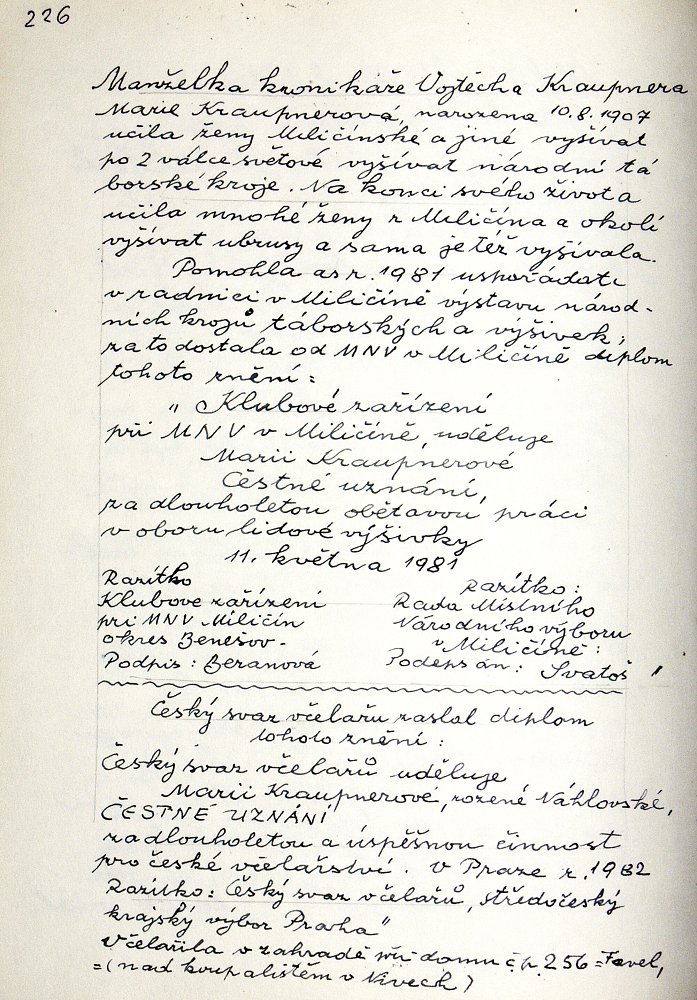 226
Manželka kronikáře Vojtěcha Kraupnera
Marie Kraupnerová, narozena 10.8.1907
učila ženy Miličínské a jiné vyšívat
po 2 válce světové vyšívat národní tá
borské kroje. Na konci svého života
učila mnohé ženy z Miličína a okolí
vyšívat ubrusy a sama je též vyšívala.
Pomohla as r. 1981 uspořádati
v radnici v Miličíně výstavu národ-
ních krojů táborských a výšivek;
za to dostala od MNV v Miličíně diplom
tohoto znění:
„Klubové zařízení
při MNV v Miličíně, uděluje
Marii Kraupnerové
Čestné uznání,
za dlouholetou obětavou práci
v oboru lidové výšivky
11. května 1981
Razítko
Klubove zařízení
při MNV Miličín
okres Benešov-
Podpis: Beranová
Razítko:
Rada Místního
Národního výboru
v Miličíně:
Podepsán: Svatoš
Český svaz včelařu zaslal diplom
tohoto znění:
Český svaz včelařů uděluje
Marii Kraupnerové, rozené Náhlovské,
ČESTNÉ UZNÁNÍ
za dlouholetou a úspěšnou činnost
pro české včelařství. V Praze r. 1982
Razítko: Český svaz včelařů, středočeský
krajský výbor Praha“
Včelařila v zahradě při domu č.p. 256 =
= (nad koupalištěm v Nivech)